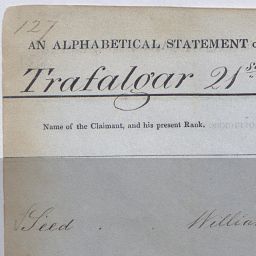 127
AN ALPHABETICAL STATEMENT
Trafalgar 21st
Name of the Claimant, and his present Rank.
Seed . . Willia